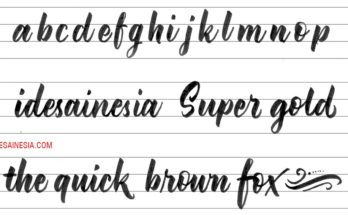 a b c d e f g h i j k l m n o p
idesainesia Super gold
ESAINESIA.COM
the quick brown fox